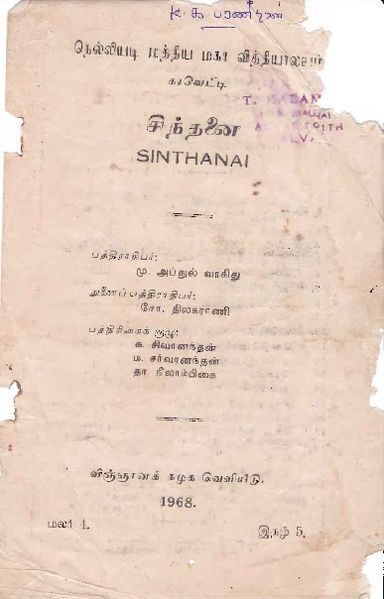 K. க. பரணீதரன்
நெல்லியடி மத்திய மகா வித்தியாலயம்
கரவெட்டி
சிந்தனை
SINTHANAI
பத்திராதிபர்:
மு. அப்துல் வாகிது
துணைப்பத்திராதிபர்:
சோ. திலகராணி
பத்திரிகைக் குழு:
க. சிவானந்தன்
ம. சர்வானந்தன்
தா. நீலாம்பிகை
விஞ்ஞானக் கழக வெளியீடு.
1968.
மலர் 1.
இதழ் 5.